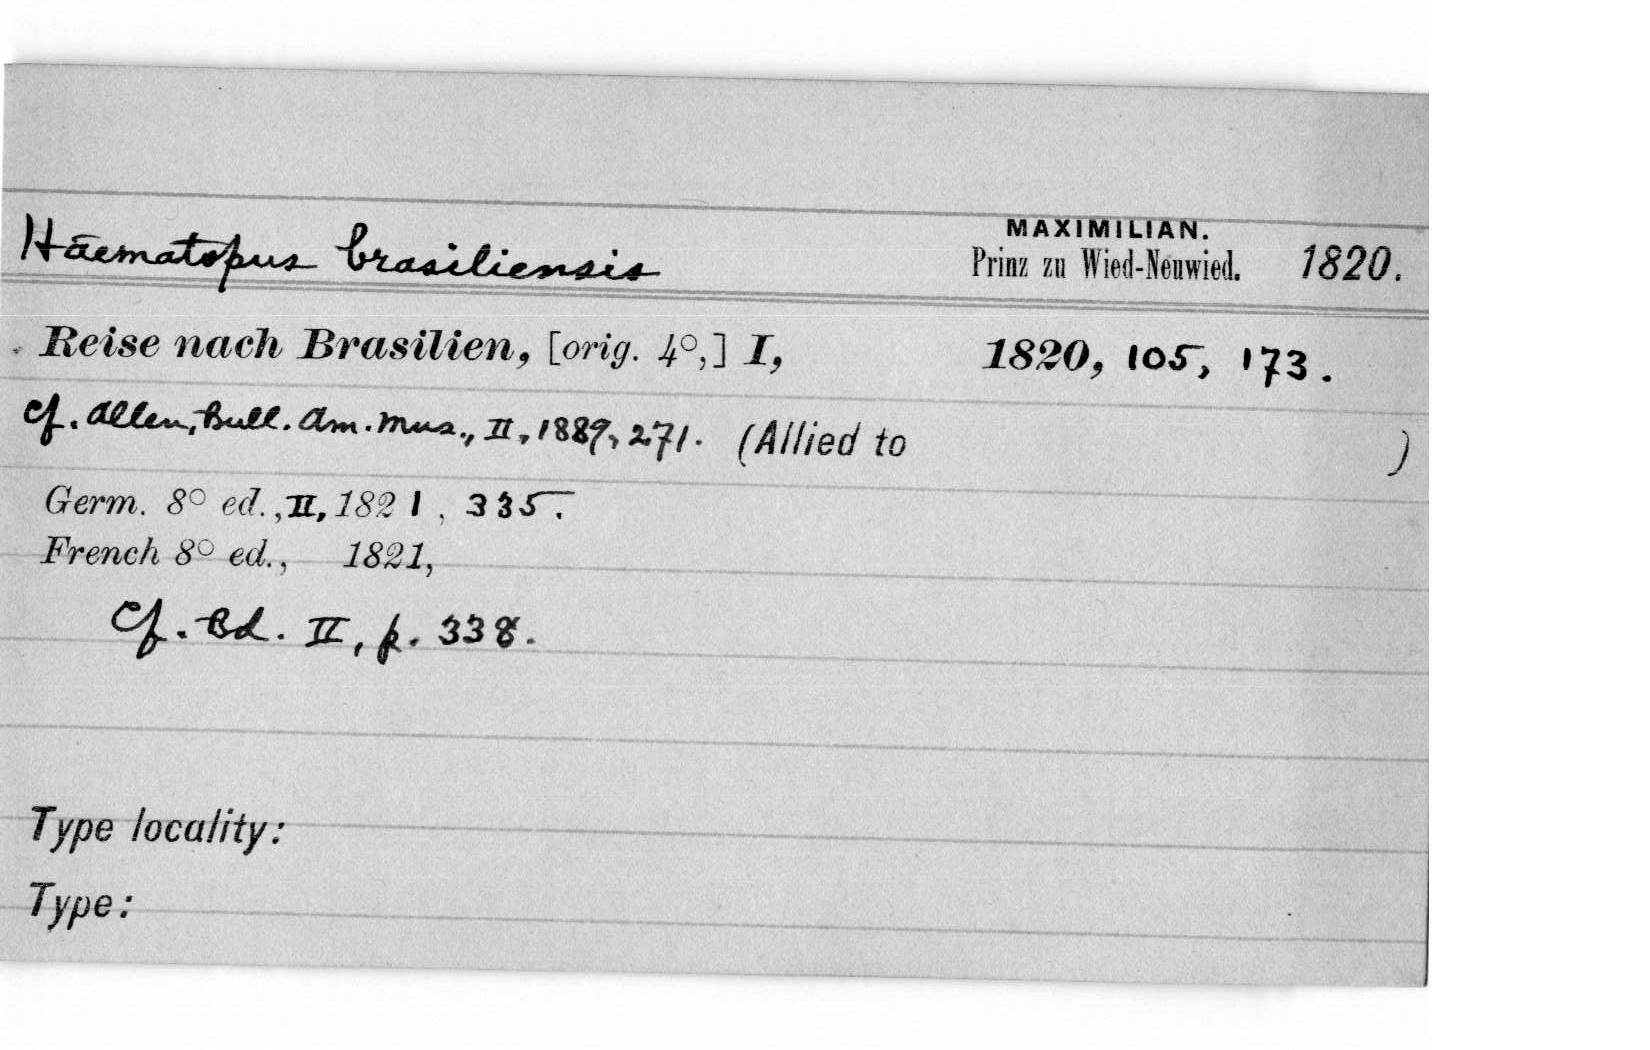 MAXIMILIAN.
Haematopus brasiliensis Prinz zu Wied-Neuwied. 1820.
Reise nach Brasilien, [orig. 4°,] I, 1820, 105, 173.
Cf. Allen, Bull. Am. Mus., II, 1889, 271. (Allied to )
Germ. 8° ed., II, 1821, 335.
French 8° ed., 1821,
Cf. Bd. II, p. 338.
Type locality:
Type: